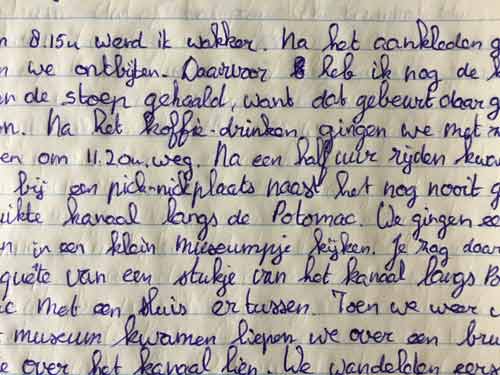 8.15u werd ik wakker. Na het aankleden
we ontbijten. Daarvoor heb ik nog de
de stoep gehaald, want dat gebeurt daar
Na het koffie-drinken, gingen we met
om 11.20u. weg. Na een half uur rijden
bij een pick-nickplaats naast het nog nooit
kanaal langs de Potomac. We gingen
in een klein museumpje kijken. Je zag daar
van een stukje van het kanaal langs
met een sluis ertussen. Toen we weer
museum kwamen liepen we over een
over het kanaal lien. We wandelden eerst